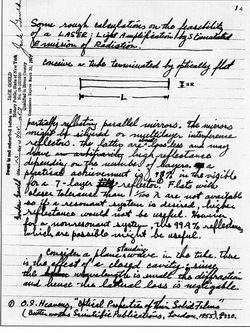 1a
Some rough calculations on the feasibility
of a LASER: Light Amplification by Stimulated
Emission of Radiation.
conceive a tube terminated by optically flat
L
partially reflecting parallel mirrors. The mirrors
might be silvered or multilayer interference
reflectors. The latter are lossless and may
have an arbitrarily high reflectance
depending on the number of layers. A
practical achievement is 98% in the visible
for a 7-layer reflector. Flats with
closer tolerance than are not available
so if a resonant system is desired, higher
reflectance would not be useful. However
for a nonresonant system, the 99.9% reflectances
which are possible might be useful.
Consider a plane standing wave in the tube. There is
the effect of a closed cavity; since
the wavelength is small the diffraction
and hence the lateral loss is negligible.
O.S. Heavens, "Optical Properties of Thin Solid Films"
(Butterworths Scientific Publications, London, 1955)
JACK GOULD